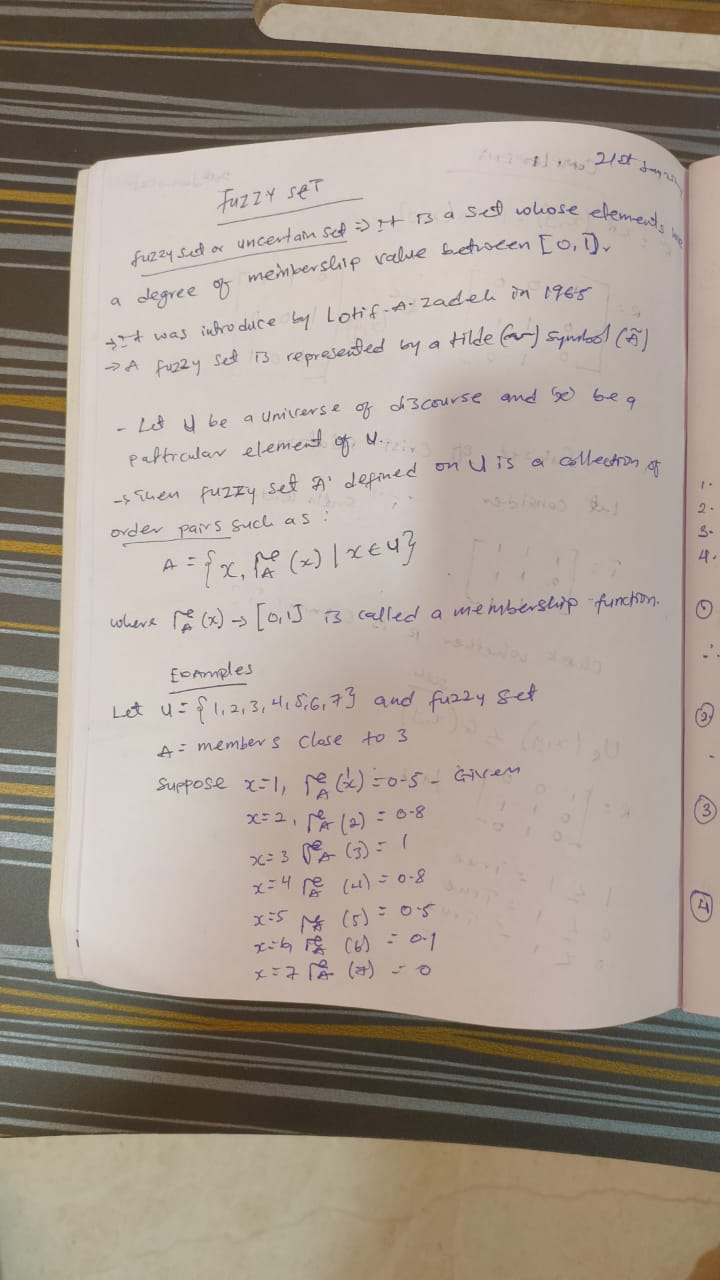 21st
FUZZY SET
fuzzy set or uncertain set => It is a set whose elements
a degree of membership value between [0,1].
→ It was introduce by Lotif-A-Zadeh in 1965
→ A fuzzy set is represented by a tilde (~) symbol (Ã)
- Let U be a universe of discourse and (x) be a
particular element of U.
→ Then fuzzy set A' defined on U is a collection of
order pairs such as :
A = { x, μ_Ã (x) | x ∈ U }
where μ_Ã (x) → [0,1] is called a membership function.
Examples
Let U = {1,2,3,4,5,6,7} and fuzzy set
A = members close to 3
Suppose x=1, μ_Ã (1) = 0.5 - Given
x=2, μ_Ã (2) = 0.8
x=3 μ_Ã (3) = 1
x=4 μ_Ã (4) = 0.8
x=5 μ_Ã (5) = 0.5
x=6 μ_Ã (6) = 0.1
x=7 μ_Ã (7) = 0
1.
2.
3.
4.
①
∴
②
③
④